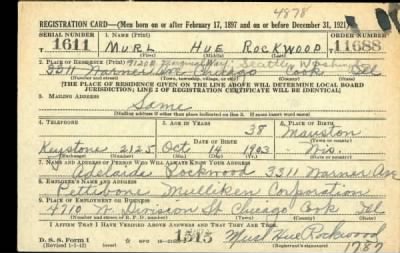 4878
REGISTRATION CARD—(Men born on or after February 17, 1897 and on or before December 31, 1921)
SERIAL NUMBER 1. NAME (Print) ORDER NUMBER
1611 MURL HUE ROCKWOOD 11688
2. PLACE OF RESIDENCE (Print) Seattle Washington
3311 Warner Ave Chicago Cook Ill
[THE PLACE OF RESIDENCE GIVEN ON THE LINE ABOVE WILL DETERMINE LOCAL BOARD
JURISDICTION; LINE 2 OF REGISTRATION CERTIFICATE WILL BE IDENTICAL]
3. MAILING ADDRESS
Same
[Mailing address if other than place indicated on line 2. If same insert word same]
4. TELEPHONE 5. AGE IN YEARS 6. PLACE OF BIRTH
38 Mauston
DATE OF BIRTH
Keystone 2125 Oct 14 1903 Wis.
7. NAME AND ADDRESS OF PERSON WHO WILL ALWAYS KNOW YOUR ADDRESS
Adelaide Rockwood 3311 Warner Ave
8. EMPLOYER'S NAME AND ADDRESS
Pettibone Mulliken Corporation
9. PLACE OF EMPLOYMENT OR BUSINESS
4710 W. Division St Chicago Cook Ill
I AFFIRM THAT I HAVE VERIFIED ABOVE ANSWERS AND THAT THEY ARE TRUE.
D. S. S. Form 1 1515 Murl Hue Rockwood
(Revised 1-5-42) (Registrant's signature)
1787